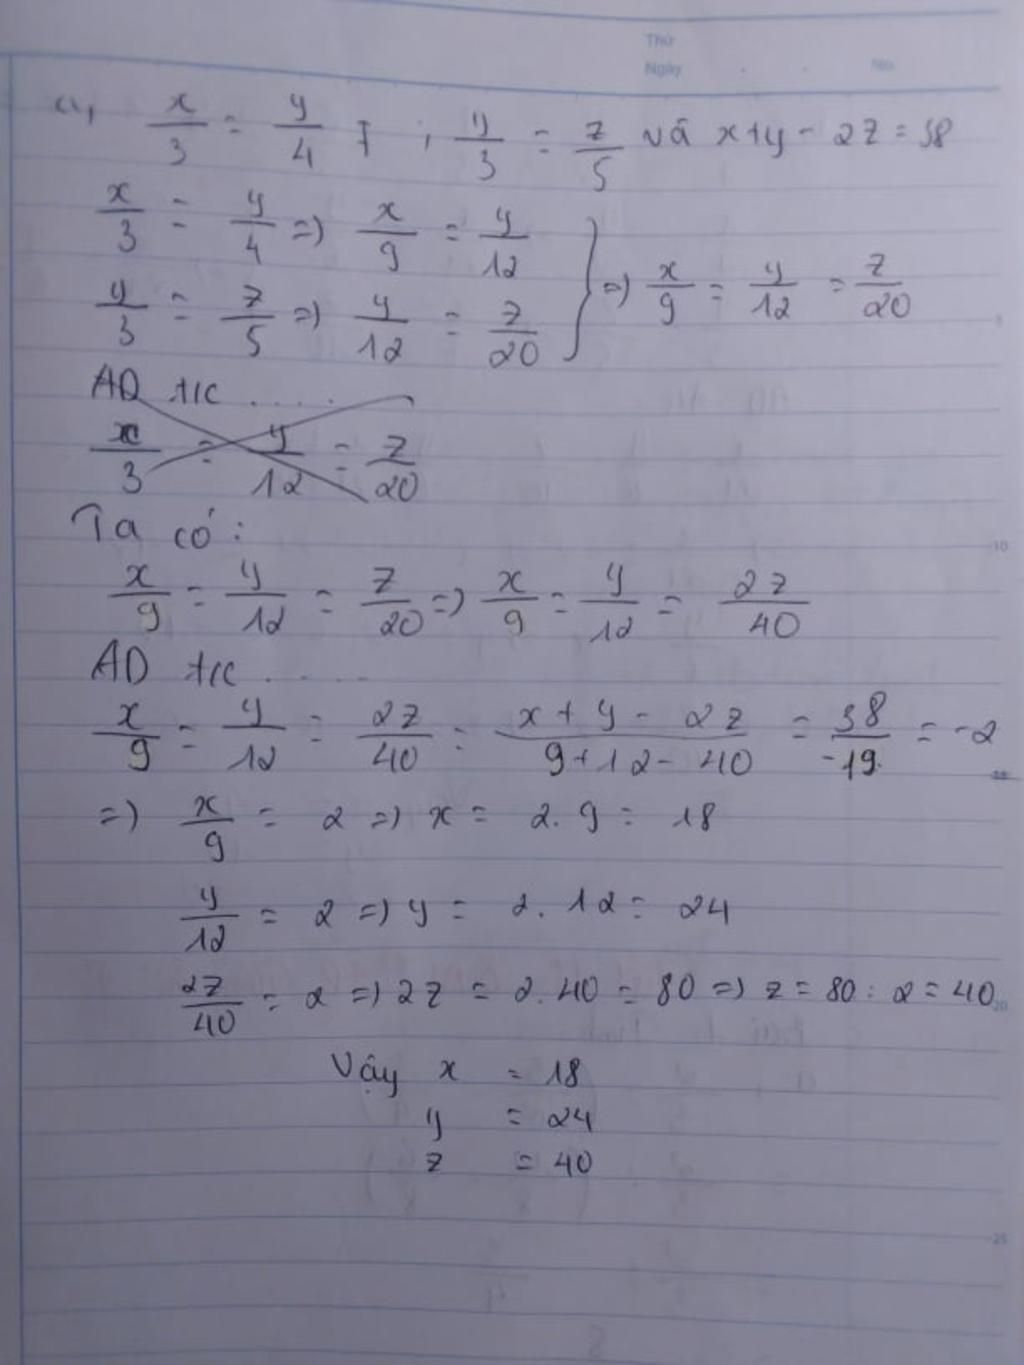 Thứ
Ngày . . No.
a, x/3 = y/4 ; y/3 = z/5 và x+y - 2z = 38
x/3 = y/4 => x/9 = y/12
y/3 = z/5 => y/12 = z/20 } => x/9 = y/12 = z/20
AD t/c .....
x/3 = y/12 = z/20
Ta có:
x/9 = y/12 = z/20 => x/9 = y/12 = 2z/40
AD t/c .....
x/9 = y/12 = 2z/40 = x + y - 2z/9+12-40 = 38/-19 = -2
=> x/9 = 2 => x = 2.9 = 18
y/12 = 2 => y = 2.12 = 24
2z/40 = 2 => 2z = 2.40 = 80 => z = 80 : 2 = 40
Vậy x = 18
y = 24
z = 40